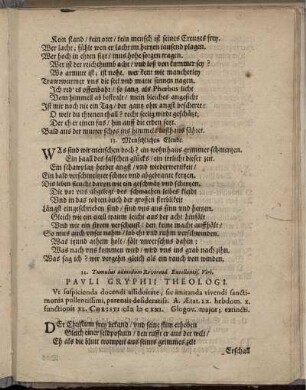 Kein stand / kein ort / kein mensch ist seines Creutzes frey.
Wer lacht, fühlt wen er lacht im hertzen tausend plagen.
Wer hoch in ehren sitzt / mus hohe sorgen tragen.
Wer ist der reichthumb acht / vnd los von kummer sey?
Wo armut ist / ist noht. wer kent wie mancherley
Trawerwürmer vns die seel vnd matte sinnen nagen.
Ich red es offenbahr / so lang als Phœbus licht
Vom himmel ab bestralt / mein bleiches angesicht
Ist mir noch nie ein Tag / der gantz ohn angst bescheret:
O welt du threnen thall! recht seelig wirdt geschätzt,
Der eher einen fus / hin auff die erden setzt
Bald aus der mutter schos ins himmels lusthaus fähret.
11. Menschliches Elende.
WAs sind wir menschen doch? ein wohnhaus grimmer schmertzen.
Ein baall des falschen glücks / ein irrlicht dieser zeit.
Ein schawplatz herber angst / vnd wiederwertikeit /
Ein bald verschmeltzter schnee vnd abgebrante kertzen.
Dis leben fleucht davon wie ein geschwätz vnd schertzen.
Die vor vns abgelegt des schwachen leibes kleid
Vnd in das todten-buch der grossen sterblikeit
Längst eingeschrieben sind / sind vns aus sinn vnd hertzen.
Gleich wie ein eitell traum leicht aus der acht hinfält
Vnd wie ein strom verscheust / den keine macht auffhält:
So mus auch vnser nahm / lob ehr vnd ruhm verschwinden.
Was itzund athem holt / fält vnversehns dahin:
Was nach vns kommen wird / wird vns ins grab nach zihn.
Was sag ich? wir vergehn gleich als ein rauch von winden.
12. Tumulus admodum Reverendi Excellentiss. Viri,
PAVLI GRYPHII THEOLOGI.
Vt suspicienda docendi assiduitate; sic imitanda vivendi sanctimonia
pollentissimi, parentis desideratiss. A. Ætat. LX. hebdom. 2.
functionis
DEr Christum frey bekand / vnd seine stim erhoben
Gleich einer feldposaun / den rafft er aus der welt /
Erschall